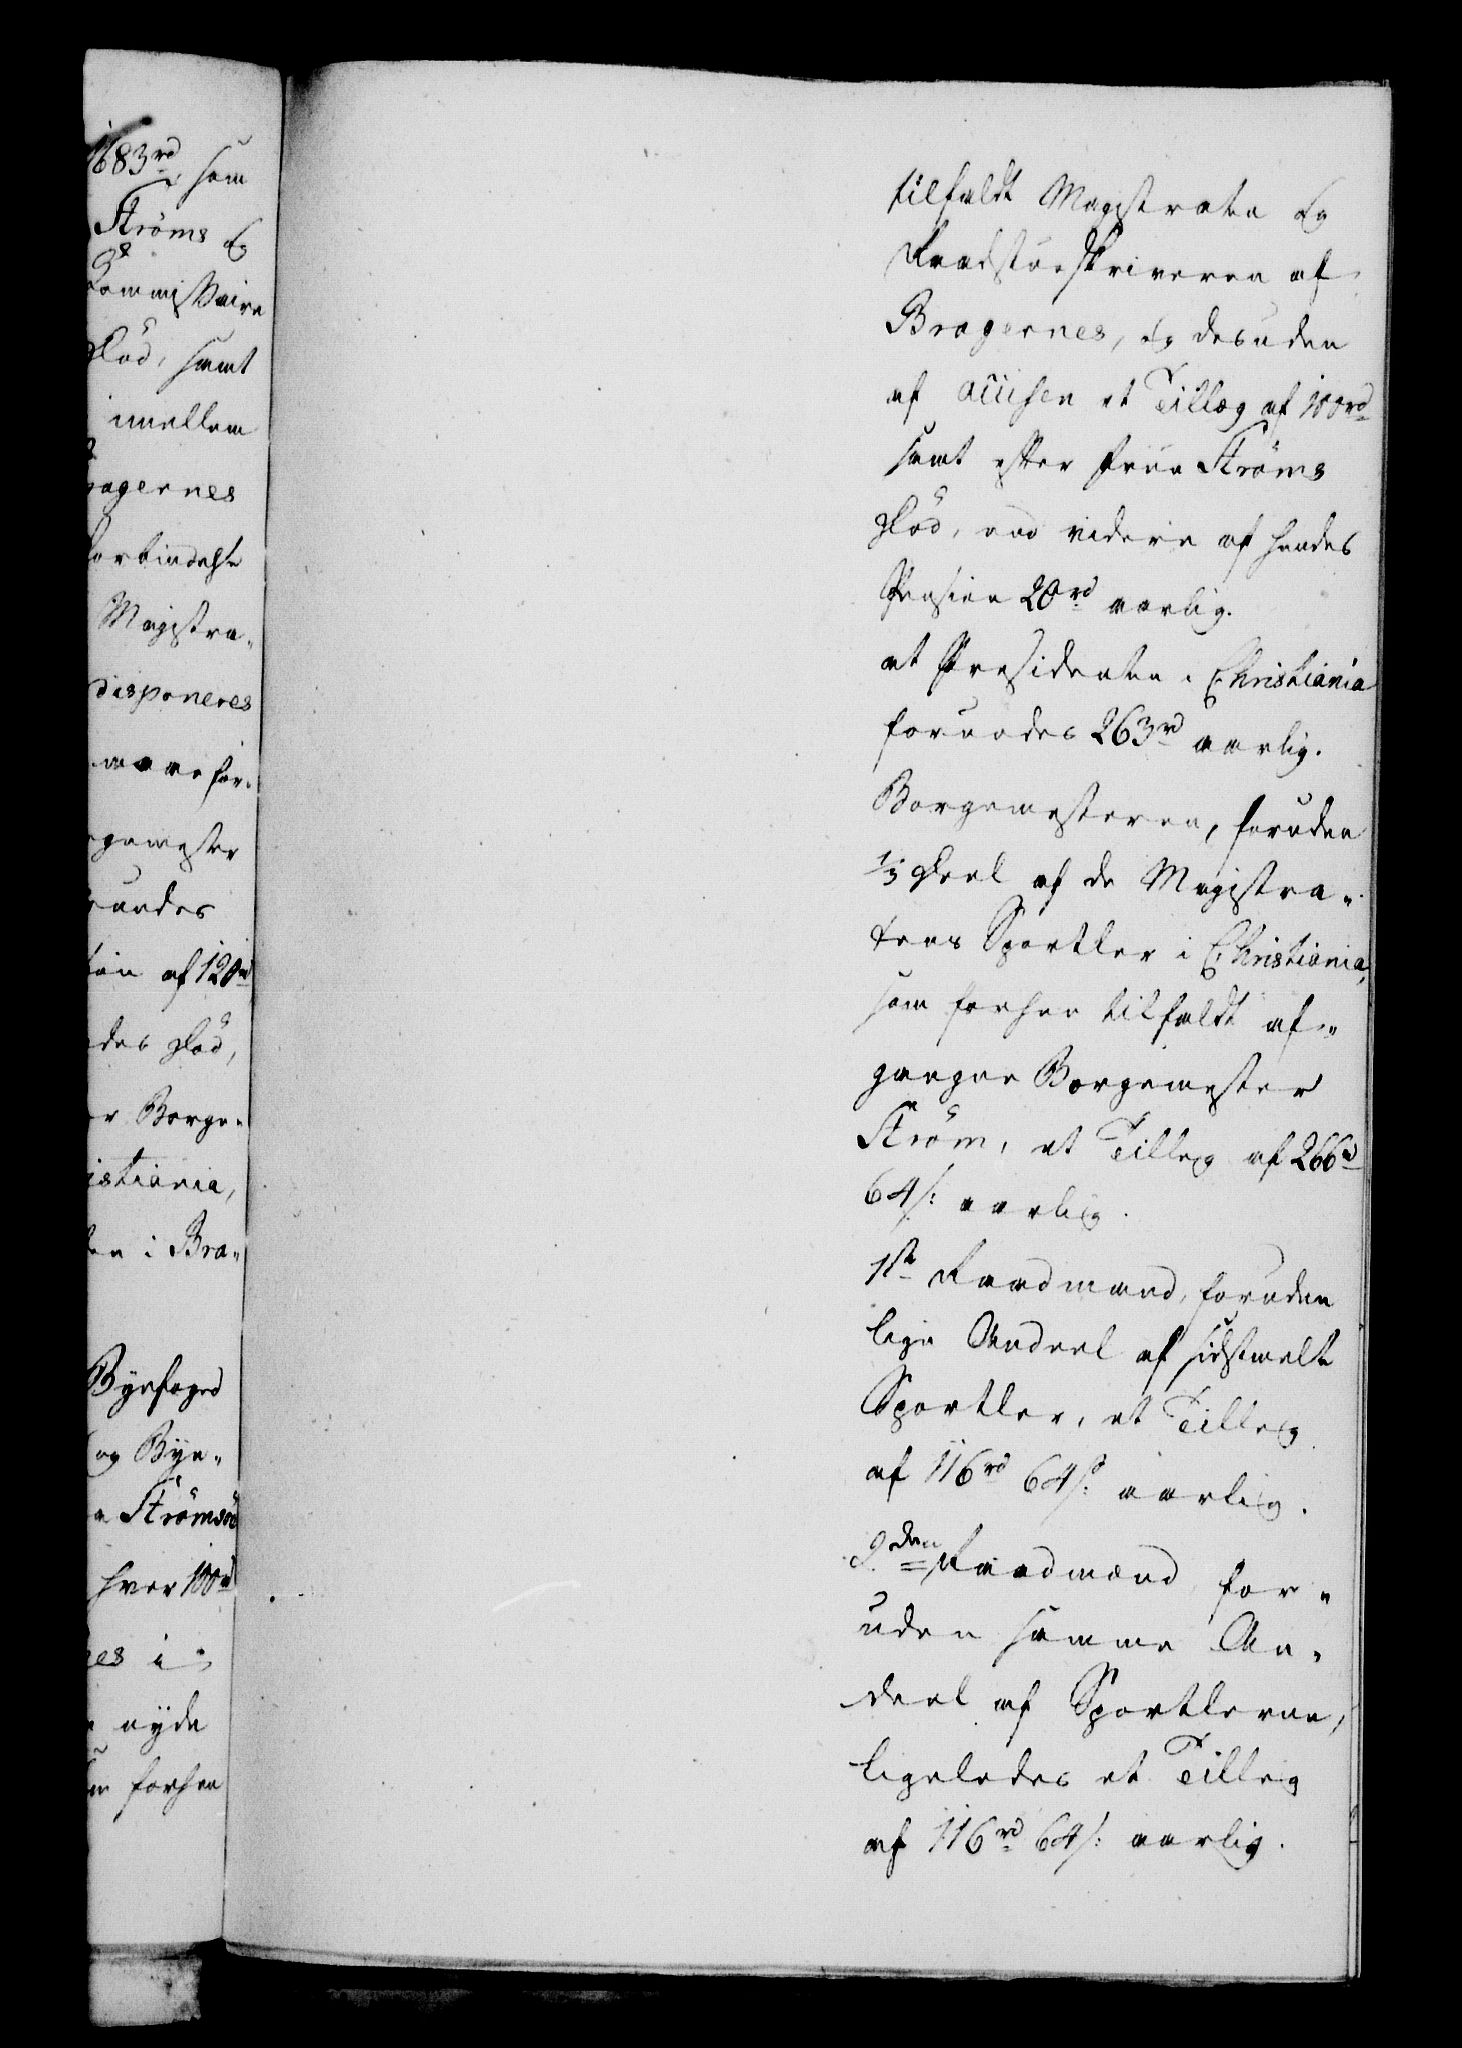 1683rd, som
Ströms og
Commissaire
Död, samt
imellem
ragernes
Forbindelse
Magistra-
disponeres
maae for-
rgemester
aarlig
af 120rd
des Död,
er Borge-
istiania,
en i Bra-
Byefoged
og Bye-
Strömsöe
hver 100rd
nes i
nyde
forhen
tilfaldt Magistraten og
Raadstueskriveren af
Bragernes, og desuden
af accisen et Tillæg af 100rd
samt efter Frue Ströms
Död, end videre af hendes
Pension 20rd aarlig.
at Præsidenten i Christiania
forundes 263rd aarlig.
Borgemesteren, foruden
1/3 Deel af de Magistra-
tens Sportler i Christiania,
som forhen tilfaldt af-
gangne Borgemester
Ström, et Tillæg af 266rd
64s: aarlig.
1ste Raadmand, foruden
lige Andeel af sidstmelte
Sportler, et Tillæg
af 116rd 64s: aarlig.
2den Raadmand, for-
uden samme An-
deel af Sportlerne,
ligeledes et Tillæg
af 116rd 64s: aarlig.